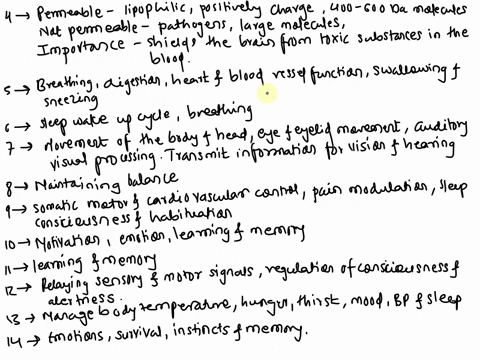 4 → Permeable - lipophilic, positively charge, 400-600 Da molecules
Not permeable - pathogens, large molecules,
Importance - shields the brain from toxic substances in the
blood.
5 → Breathing, digestion, heart & blood vessel function, swallowing &
sneezing
6 → sleep wake up cycle, breathing
7 → Movement of the body & head, eye & eyelid movement, auditory
visual processing. Transmit information for vision & hearing
8 → Maintaining balance
9 → somatic motor & cardiovascular control, pain modulation, sleep
consciousness & habituation
10 → Motivation, emotion, learning & memory
11 → learning & memory
12 → Relaying sensory & motor signals, regulation of consciousness &
alertness.
13 → Manage body temperature, hunger, thirst, mood, BP & sleep
14 → Emotions, survival, instincts & memory.